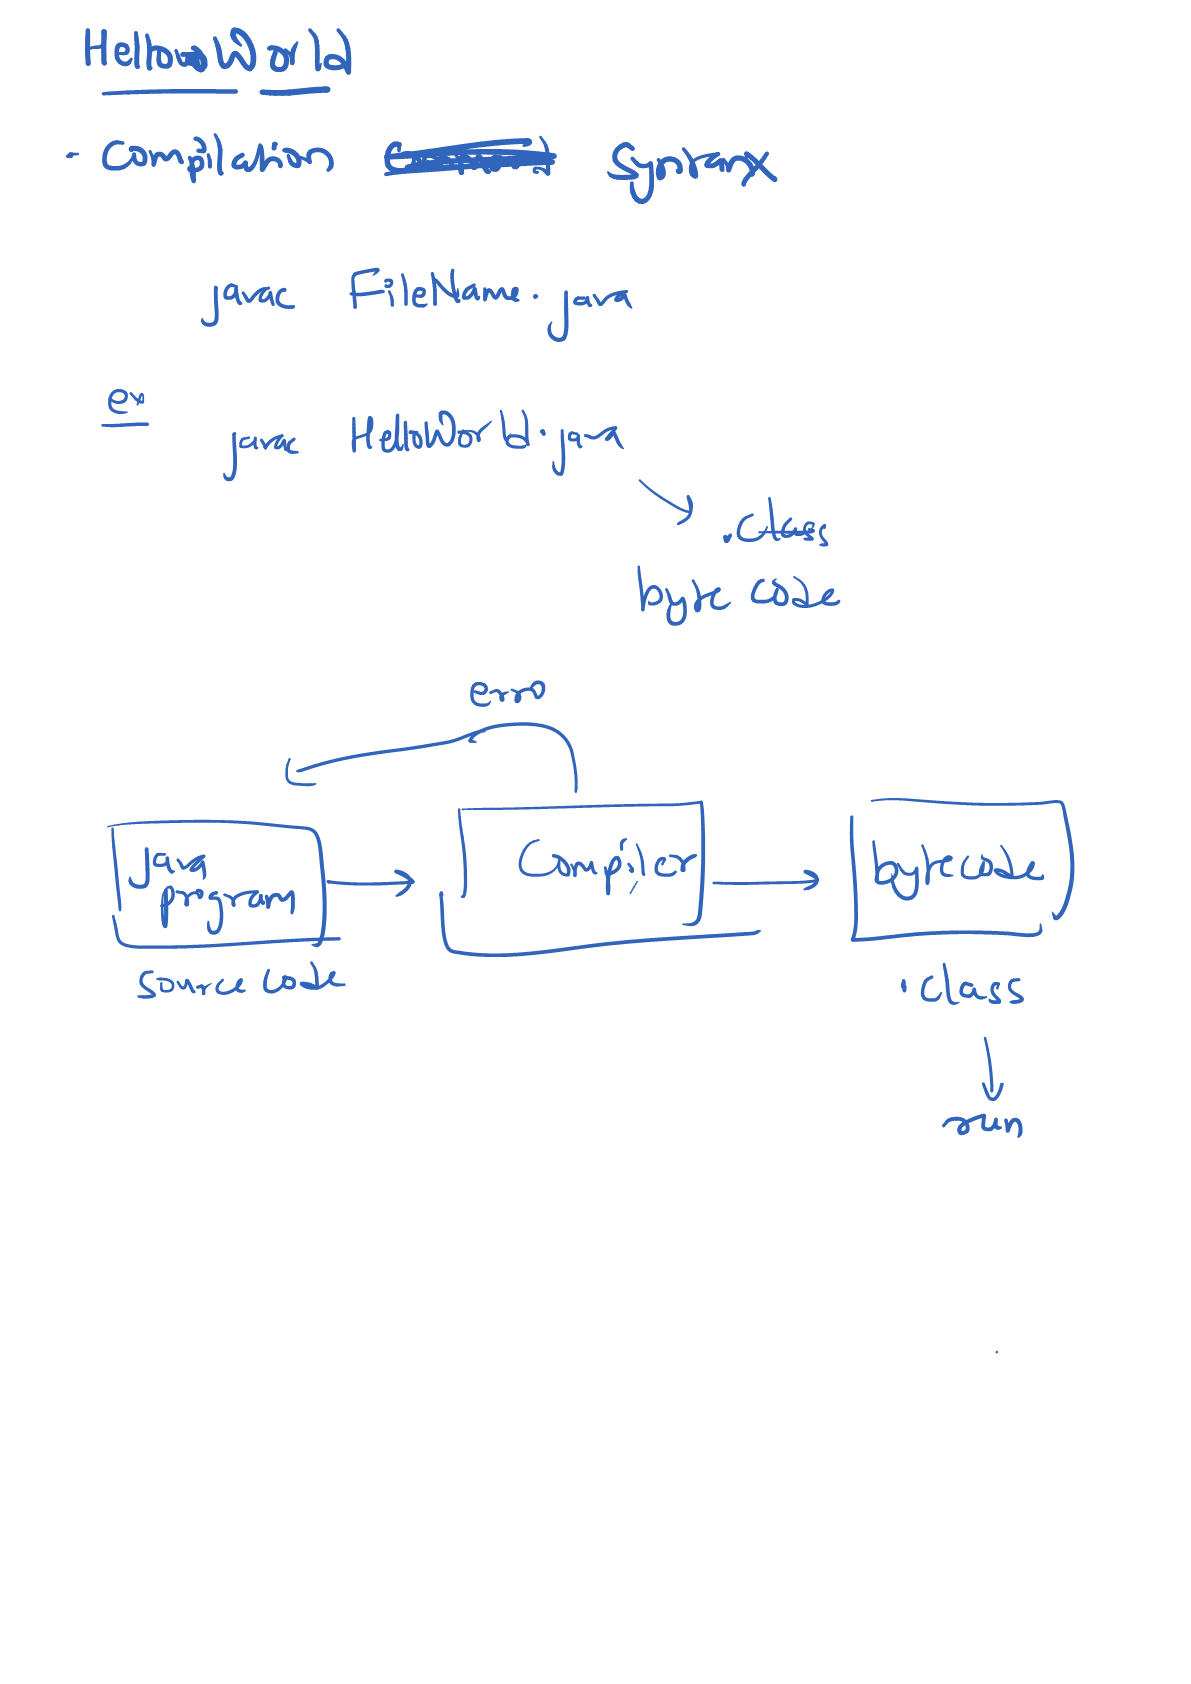 HelloWorld
- Compilation Syntanx
javac FileName.java
ex
javac HelloWorld.java
.class
byte code
erro
java
program
Compiler
bytecode
source code
.class
run